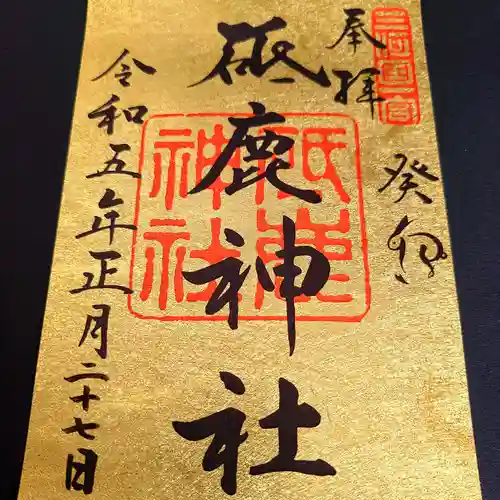 三河國一宮
奉拝
癸卯
砥鹿神社
砥鹿神社
令和五年正月二十七日